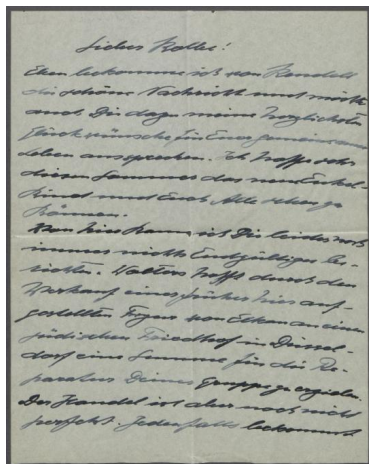 Lieber Koller!
Eben bekomme ich von Rendell
die schöne Nachricht und möchte
auch Dir dazu meine herzlichsten
Glückwünsche für Euer gemeinsames
Leben aussprechen. Ich hoffe sehr
diesen Sommer das neue Enkel-
kind und Euch Alle sehen zu
können.
Von hier kann ich Dir leider noch
immer nichts Endgültiges be-
richten. Walters hofft durch den
Verkauf einer früher hier auf-
gestellten Figur von Elkan an einen
jüdischen Friedhof in Düssel-
dorf eine Summe für die Re-
paratur Deiner Gruppe zu erzielen.
Der Handel ist aber noch nicht
perfekt. Jedenfalls bekommst